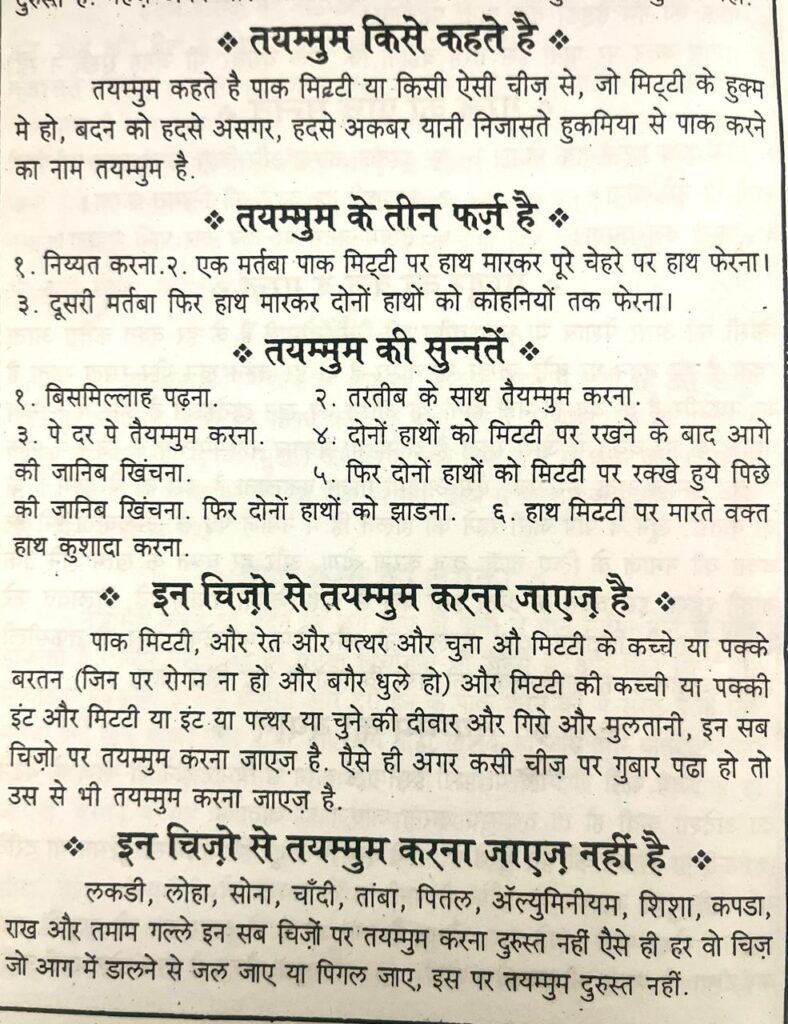 ❖ तयम्मुम किसे कहते है ❖
तयम्मुम कहते है पाक मिटटी या किसी ऐसी चीज़ से, जो मिट्टी के हुक्म
मे हो, बदन को हदसे असगर, हदसे अकबर यानी निजासते हुकमिया से पाक करने
का नाम तयम्मुम है.
❖ तयम्मुम के तीन फर्ज़ है ❖
१. निय्यत करना.२. एक मर्तबा पाक मिट्टी पर हाथ मारकर पूरे चेहरे पर हाथ फेरना।
३. दूसरी मर्तबा फिर हाथ मारकर दोनों हाथों को कोहनियों तक फेरना।
❖ तयम्मुम की सुन्नतें ❖
१. बिसमिल्लाह पढना. २. तरतीब के साथ तैयम्मुम करना.
३. पे दर पे तैयम्मुम करना. ४. दोनों हाथों को मिटटी पर रखने के बाद आगे
की जानिब खिंचना. ५. फिर दोनों हाथों को मिटटी पर रक्खे हुये पिछे
की जानिब खिंचना. फिर दोनों हाथों को झाडना. ६. हाथ मिटटी पर मारते वक्त
हाथ कुशादा करना.
❖ इन चिज़ो से तयम्मुम करना जाएज़ है ❖
पाक मिटटी, और रेत और पत्थर और चुना औ मिटटी के कच्चे या पक्के
बरतन (जिन पर रोगन ना हो और बगैर धुले हो) और मिटटी की कच्ची या पक्की
इंट और मिटटी या इंट या पत्थर या चुने की दीवार और गिरो और मुलतानी, इन सब
चिज़ो पर तयम्मुम करना जाएज़ है. एैसे ही अगर कसी चीज़ पर गुबार पढा हो तो
उस से भी तयम्मुम करना जाएज़ है.
❖ इन चिज़ो से तयम्मुम करना जाएज़ नहीं है ❖
लकडी, लोहा, सोना, चाँदी, तांबा, पितल, ॲल्युमिनीयम, शिशा, कपडा,
राख और तमाम गल्ले इन सब चिज़ों पर तयम्मुम करना दुरुस्त नहीं एैसे ही हर वो चिज़
जो आग में डालने से जल जाए या पिगल जाए, इस पर तयम्मुम दुरुस्त नहीं.